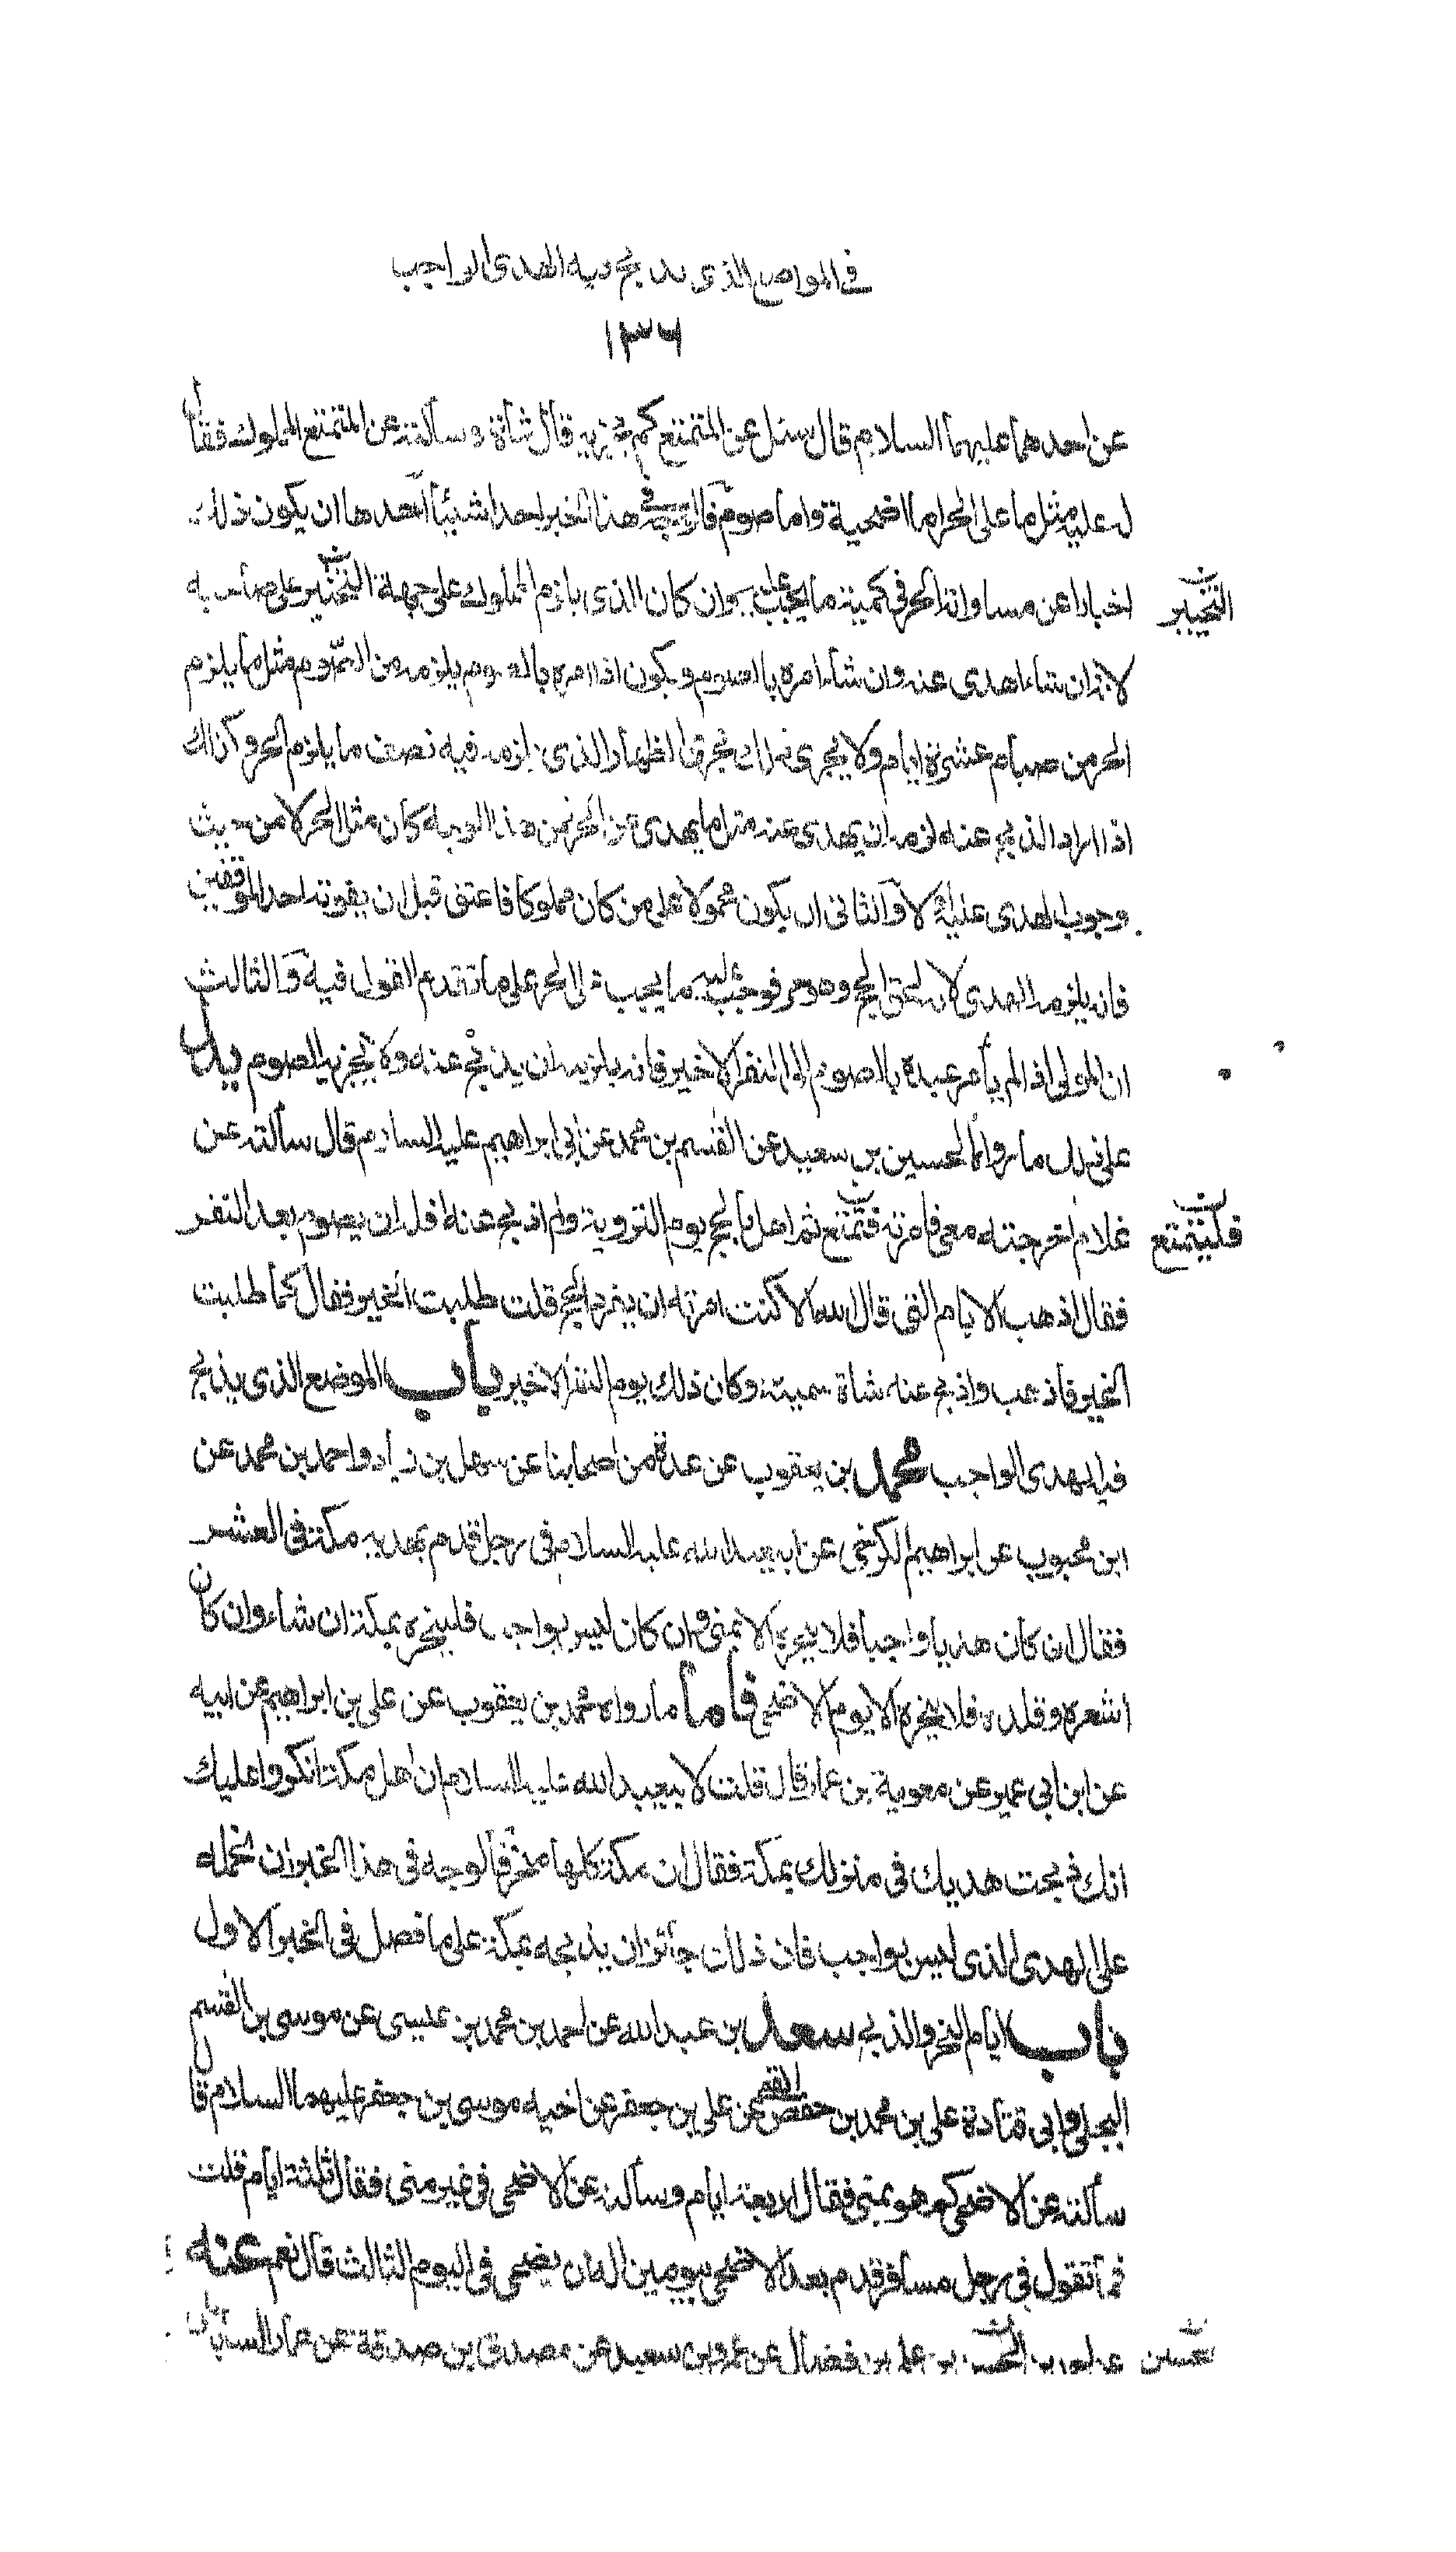 في المواضع الذى يذبح فيه الهدى الواجب
١٣٦
عن احدهما عليهما السلام قال سئل عن المتمتع كم يجزيه قال شاة وسألته عن المتمتع المملوك فقا
ل عليه مثل ما على الحر اما اضحية واما صوم فالوجه فى هذا الخبر احد شيئين احدهما ان يكون ذلك
اخبارا عن مساواته الحر فى كمية ما يجب عليه وان كان الذى يلزم المملوك على جهة التخيير على صاحبه
التخيير
لانه ان شاء اهدى عنه وان شاء امره بالصوم ويكون اذا امره بالصوم يلزمه من الصوم مثل ما يلزم
الحر من صيام عشرة ايام ولا يجرى ذلك مجرى الظهار الذى يلزمه فيه نصف ما يلزم الحر وكذلك
اذا اراد الذبح عنه لزمه ان يهدى عنه مثل ما يهدى عن الحر فمن هذا الوجه كان مثل الحر لا من حيث
وجوب الهدى عليه والثانى ان يكون محمولا على من كان مملوكا فاعتق قبل ان يفوته احد الموقفين
فانه يلزمه الهدى لانه لحق الحج وهو حر فوجب عليه ما يجب على الحر على ما تقدم القول فيه والثالث
ان المولى اذا لم يأمر عبده بالصوم الى النفر الاخير فانه يلزمه ان يذبح عنه ولا يجزيه الصوم يدل
على ذلك ما رواه الحسين بن سعيد عن القسم بن محمد عن ابى ابراهيم عليه السلام قال سألته عن
غلام اخرجته معى فامرته فتمتع ثم اهل بالحج يوم التروية ولم اذبح عنه افله ان يصوم بعد النفر
فليتمتع
فقال اذهب الايام التى قال الله الا كنت امرته ان يفرد الحج قلت طلبت الخير فقال كما طلبت
الخير فاذهب واذبح عنه شاة سمينة وكان ذلك يوم النفر الاخير باب الموضع الذى يذبح
فيه الهدى الواجب محمد بن يعقوب عن عدة من اصحابنا عن سهل بن زياد واحمد بن محمد عن
ابن محبوب عن ابراهيم الكرخى عن ابى عبد الله عليه السلام فى رجل قدم بهديه مكة فى العشر
فقال ان كان هديا واجبا فلا ينحره الا بمنى وان كان ليس بواجب فلينحره بمكة ان شاء وان كان
اشعره وقلده فلا ينحره الا يوم الاضحى فاما ما رواه محمد بن يعقوب عن على بن ابراهيم عن ابيه
عن ابن ابى عمير عن معوية بن عمار قال قلت لابيعبد الله عليه السلام ان اهل مكة انكروا عليك
انك ذبحت هديك فى منزلك بمكة فقال ان مكة كلها منحر فالوجه فى هذا الخبر ان نحمله
على الهدى الذى ليس بواجب فان ذلك جائز ان يذبحه بمكة على ما فصل فى الخبر الاول
باب ايام النحر والذبح سعد بن عبد الله عن احمد بن محمد بن عيسى عن موسى بن القسم
البجلى وابى قتادة على بن محمد بن حفص القمى عن على بن جعفر عن اخيه موسى بن جعفر عليهما السلام قال
سألته عن الاضحى كم هو بمنى فقال اربعة ايام وسألته عن الاضحى فى غير منى فقال ثلثة ايام قلت
فما تقول فى رجل مسافر قدم بعد الاضحى بيومين اله ان يضحى فى اليوم الثالث قال نعم عنه
بن على بن فضال عن عمرو بن سعيد عن مصدق بن صدقة عن عمار الساباطى